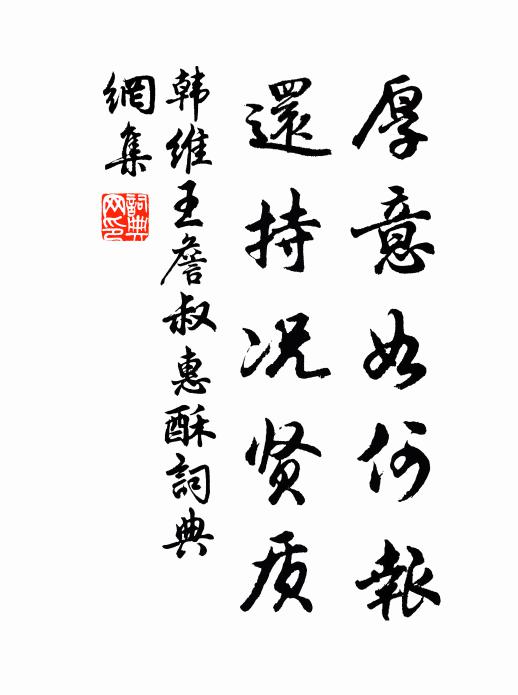 厚意如何報
還持况贤质
韩维王詹叔惠酥詞典
網集
詞典网印